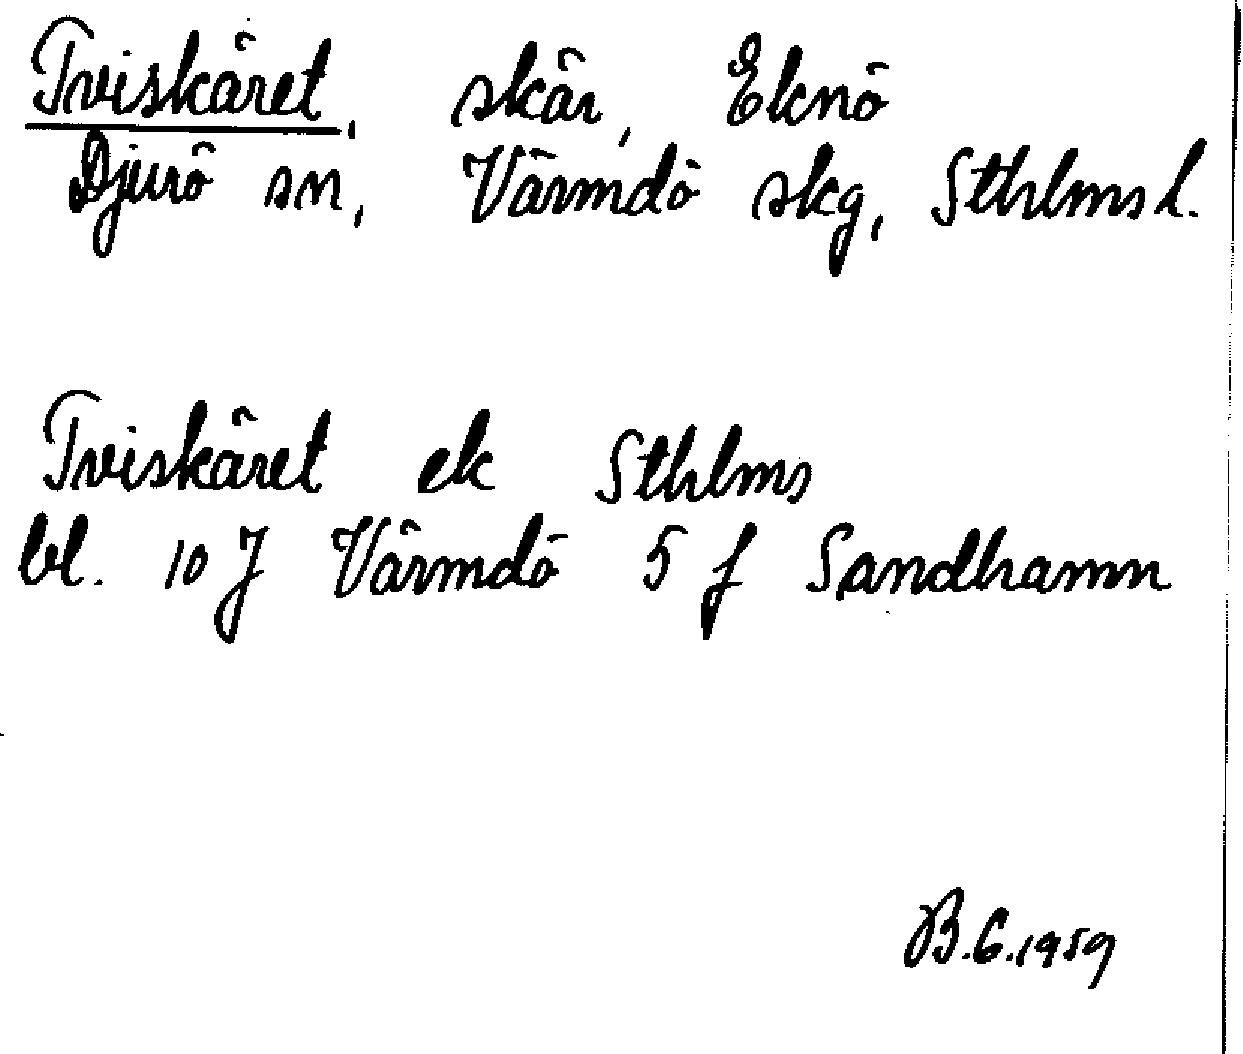 Tviskäret, skär, Eknö
Djurö sn, Värmdö skg, Sthlms l.
Tviskäret ek Sthlms
bl. 10 J Värmdö 5 f Sandhamn
B.G.1959